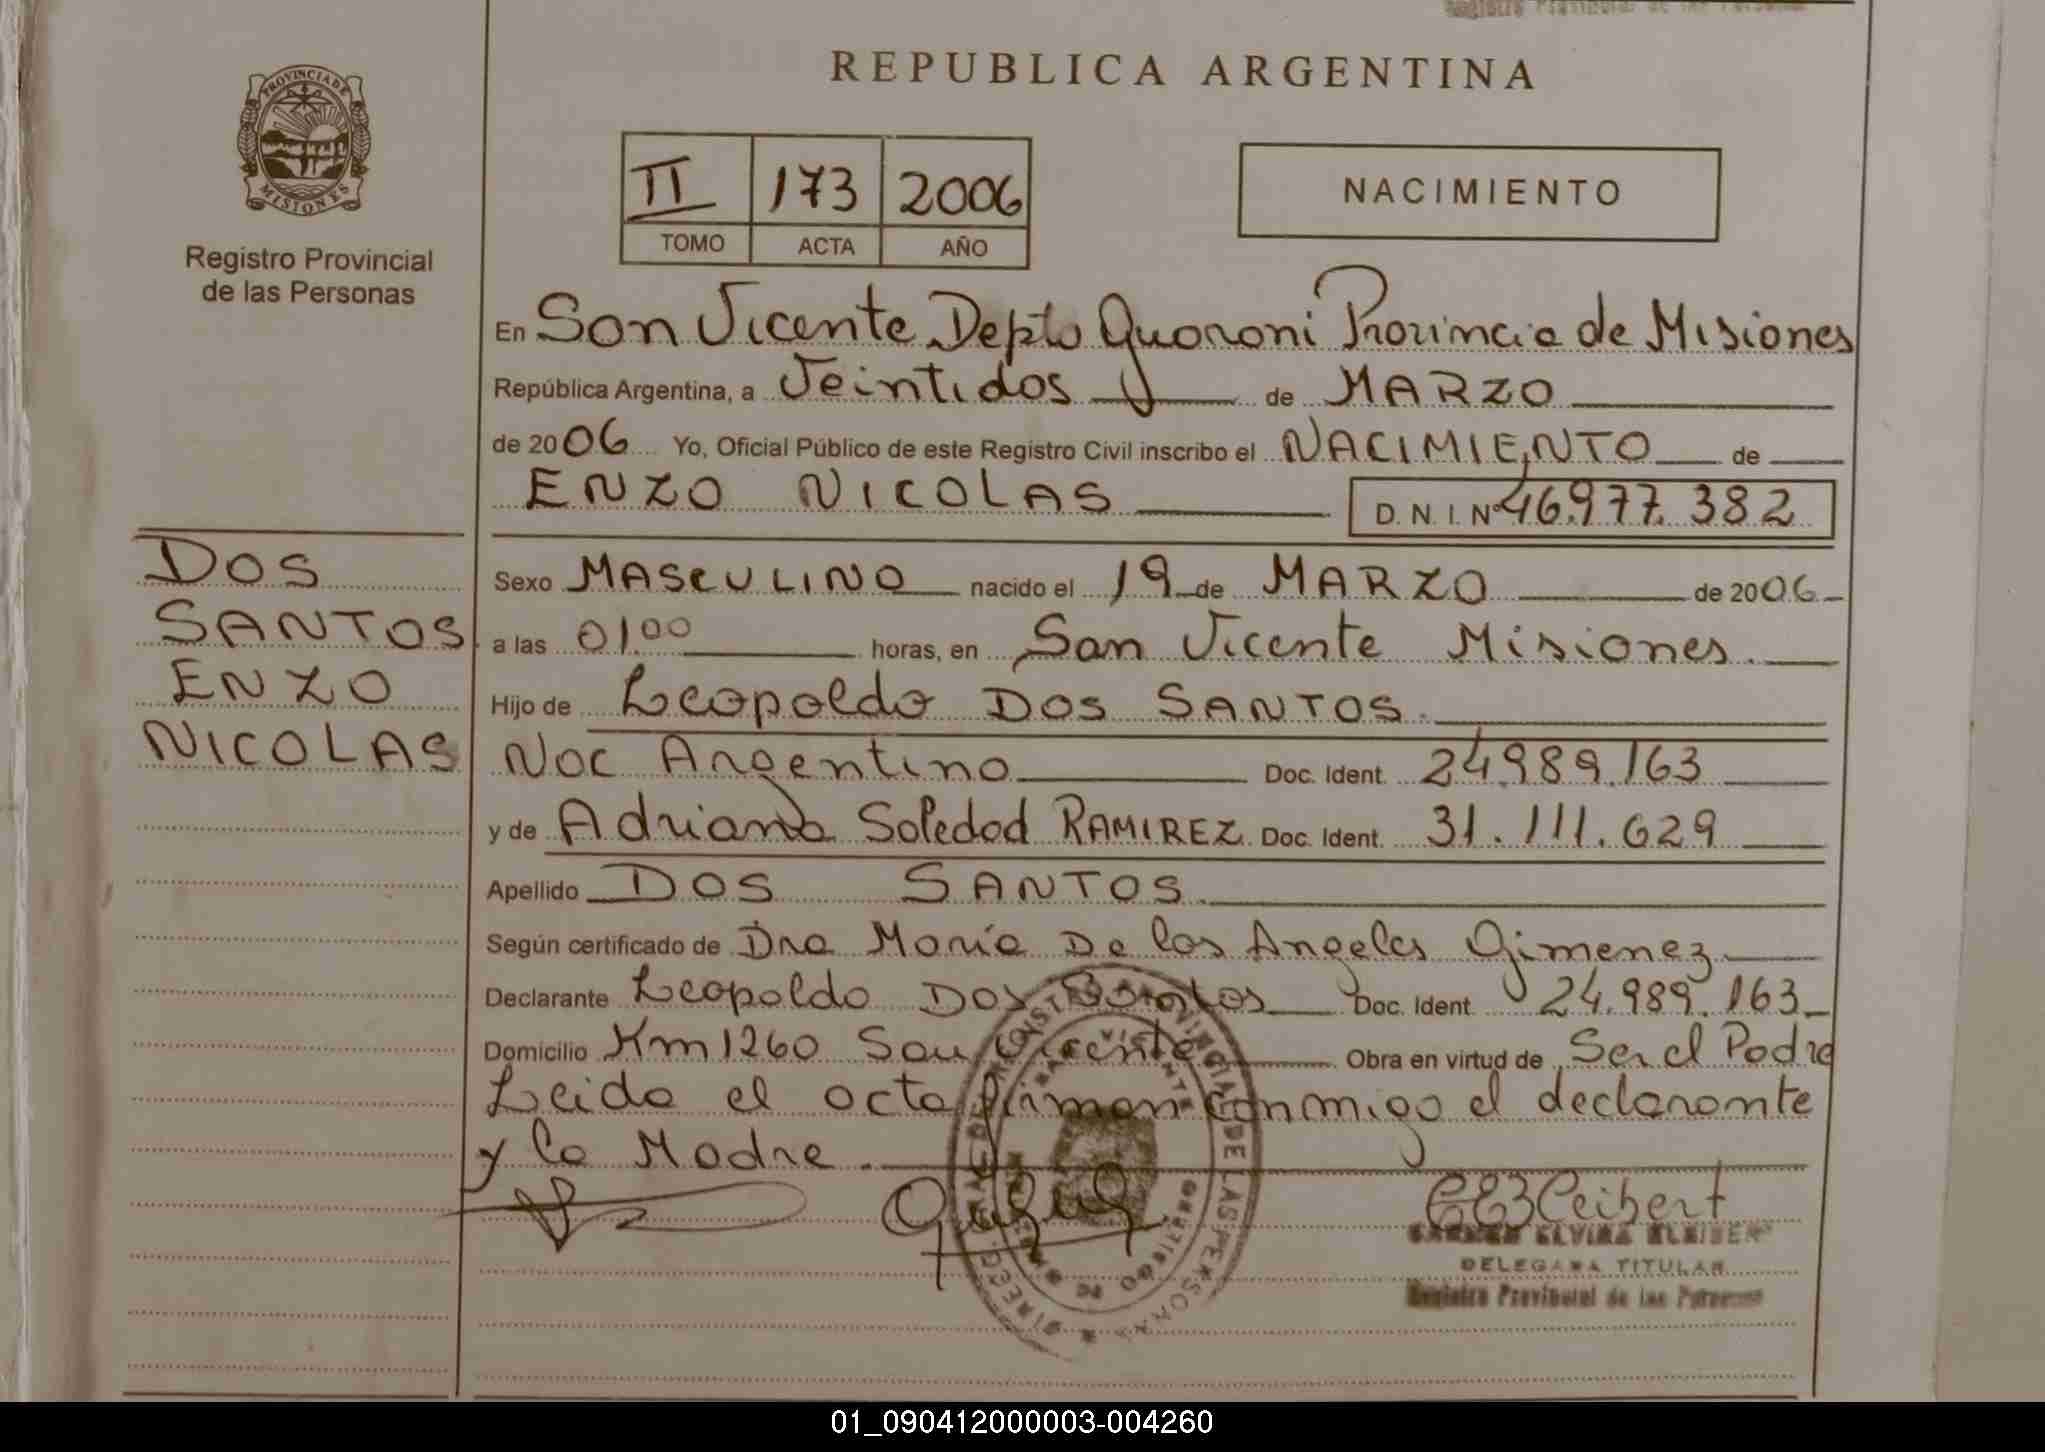 REPUBLICA ARGENTINA
PROVINCIA DE
MISIONES
Registro Provincial
de las Personas
II 173 2006
TOMO ACTA AÑO
NACIMIENTO
En San Vicente Depto Guarani Provincia de Misiones
República Argentina, a Veintidos de MARZO
de 2006 Yo, Oficial Público de este Registro Civil inscribo el NACIMIENTO de
ENZO NICOLAS D. N. I. Nº 46.977.382
DOS
SANTOS
ENZO
NICOLAS
Sexo MASCULINO nacido el 19 de MARZO de 2006
a las 01.00 horas, en San Vicente Misiones.
Hijo de Leopoldo DOS SANTOS.
Nac Argentino Doc. Ident. 24.989.163
y de Adriana Soledad RAMIREZ Doc. Ident. 31.111.629
Apellido DOS SANTOS.
Según certificado de Dra Maria De los Angeles Gimenez
Declarante Leopoldo Dos Santos Doc. Ident. 24.989.163
Domicilio Km 1260 San Vicente Obra en virtud de Ser el Padre
Leida el acta firman conmigo el declarante
y la Madre.
DELEGADA TITULAR
Registro Provincial de las Personas
01_090412000003-004260